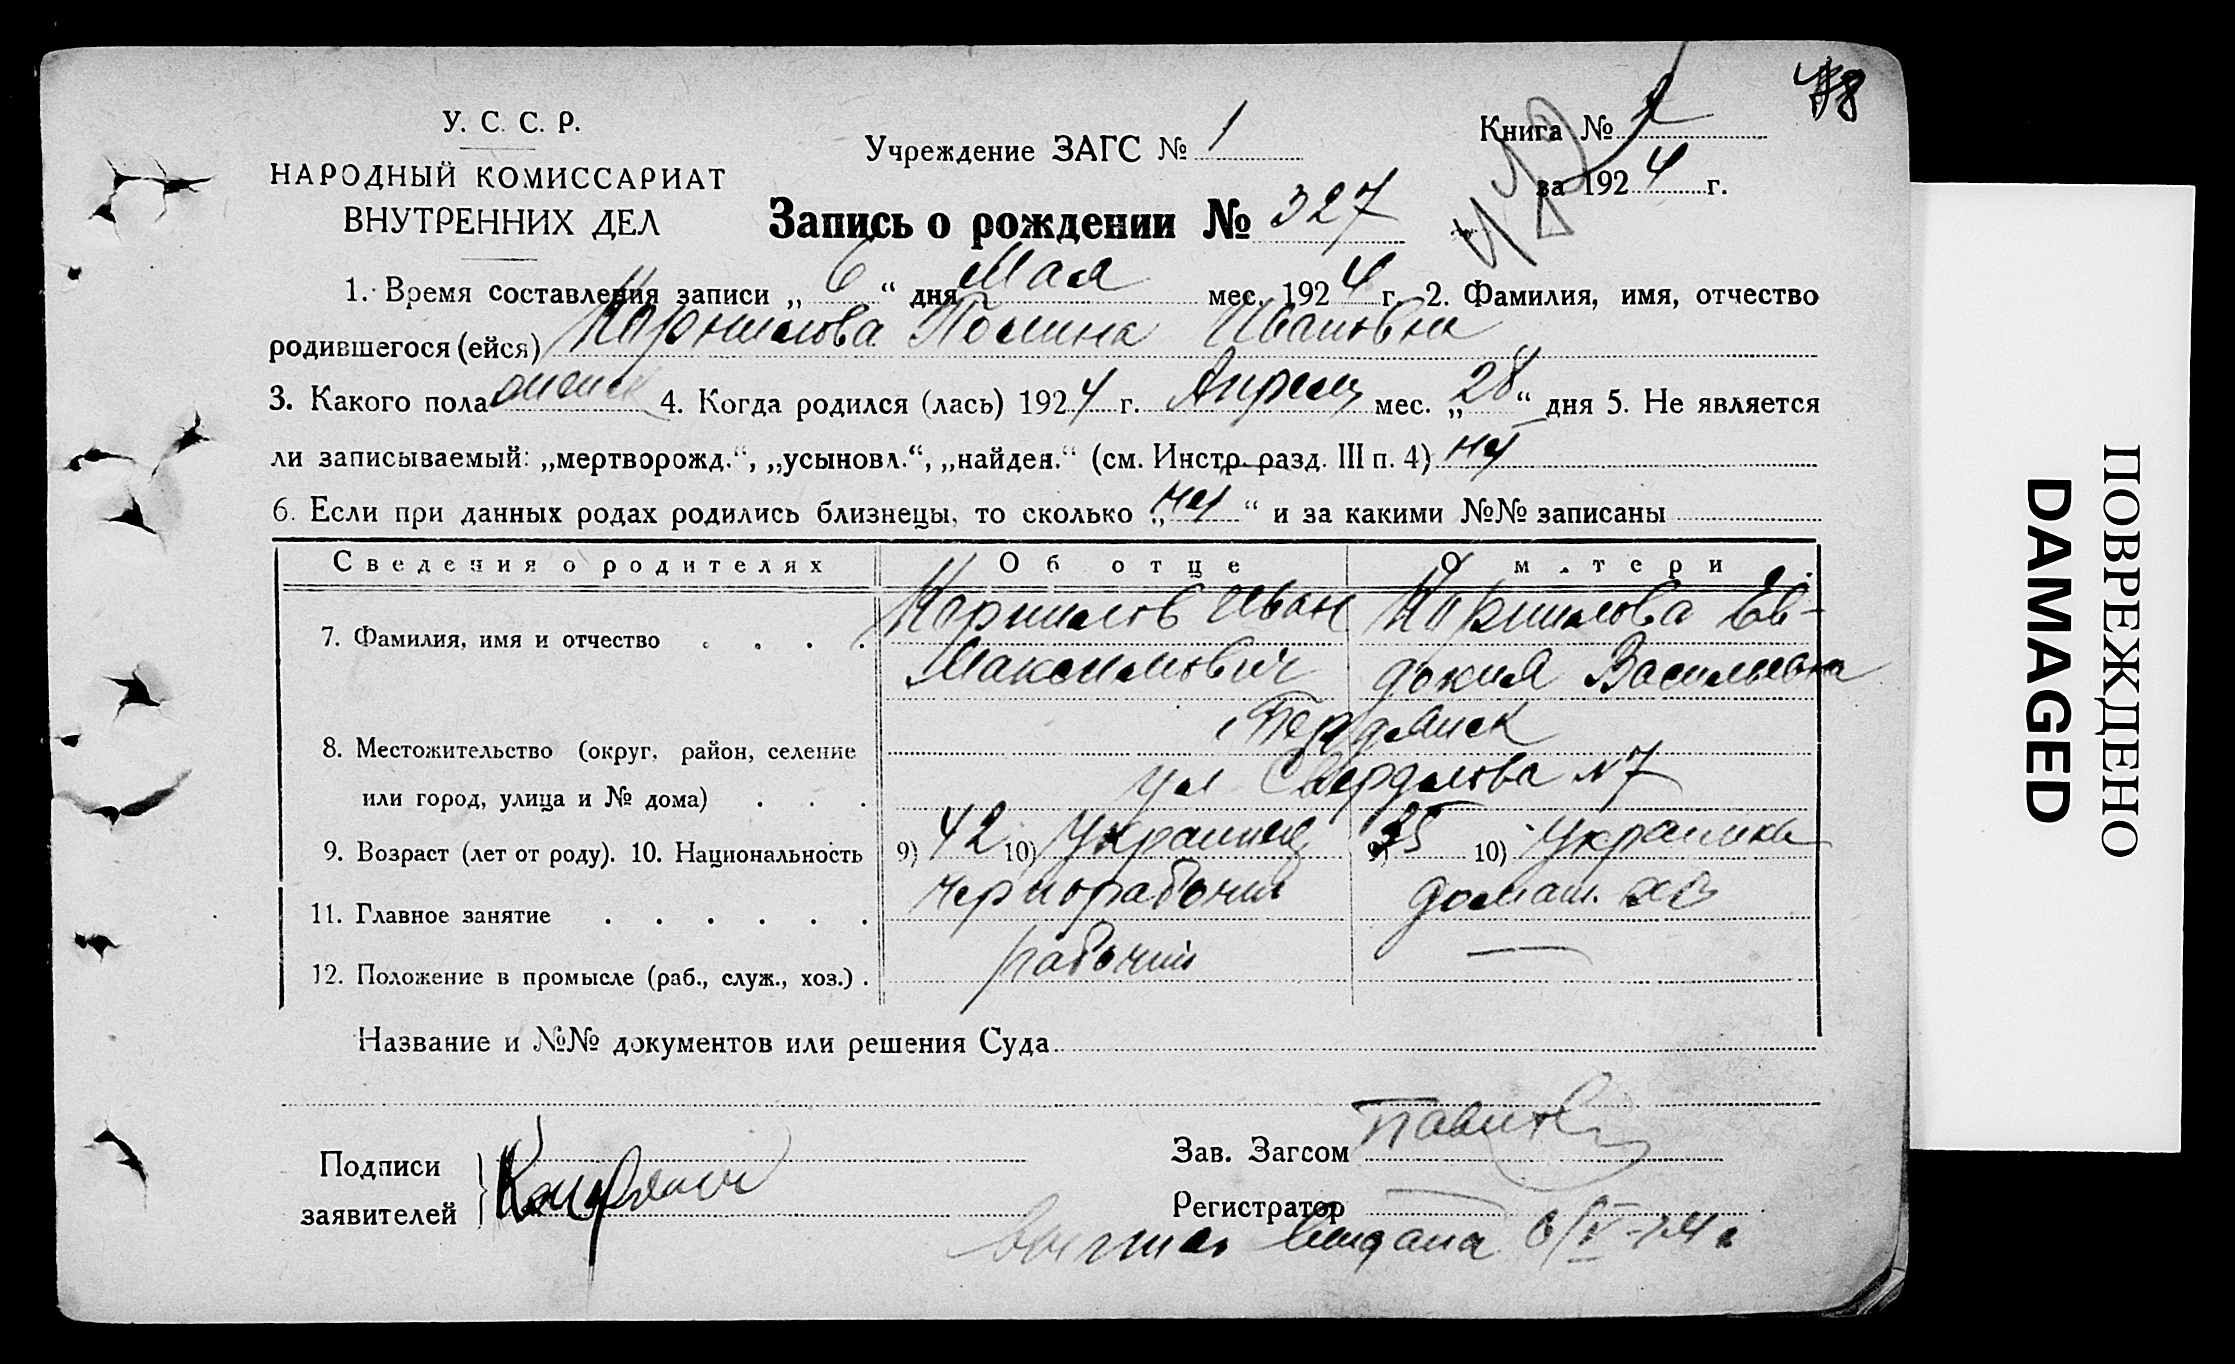 У. С. С. Р.
НАРОДНЫЙ КОМИССАРИАТ
ВНУТРЕННИХ ДЕЛ
Учреждение ЗАГС № 1
Книга № 2
за 1924 г.
48
Запись о рождении № 327
1. Время составления записи „ 6 “ дня Мая мес. 1924 г. 2. Фамилия, имя, отчество
родившегося (ейся) Корнилова Полина Ивановна
3. Какого пола женск 4. Когда родился (лась) 1924 г. Апрель мес. „ 28 “ дня 5. Не является
ли записываемый: „мертворожд.“, „усыновл.“, „найден.“ (см. Инстр. разд. III п. 4) нет
6. Если при данных родах родились близнецы, то сколько „ нет “ и за какими №№ записаны
Сведения о родителях Об отце О матери
7. Фамилия, имя и отчество Корнилов Иван Корнилова Ев-
Максимович докия Васильевна
Бердянск
8. Местожительство (округ, район, селение
или город, улица и № дома) ул Свердлова № 7
9. Возраст (лет от роду). 10. Национальность 9) 42 10) Украинец 9) 35 10) Украинка
11. Главное занятие чернорабочий домаш. хоз
12. Положение в промысле (раб., служ., хоз.) рабочий —
Название и №№ документов или решения Суда
Подписи
заявителей
Зав. Загсом
Регистратор
выпись выдана 6/V-24 г
ПОВРЕЖДЕНО
DAMAGED